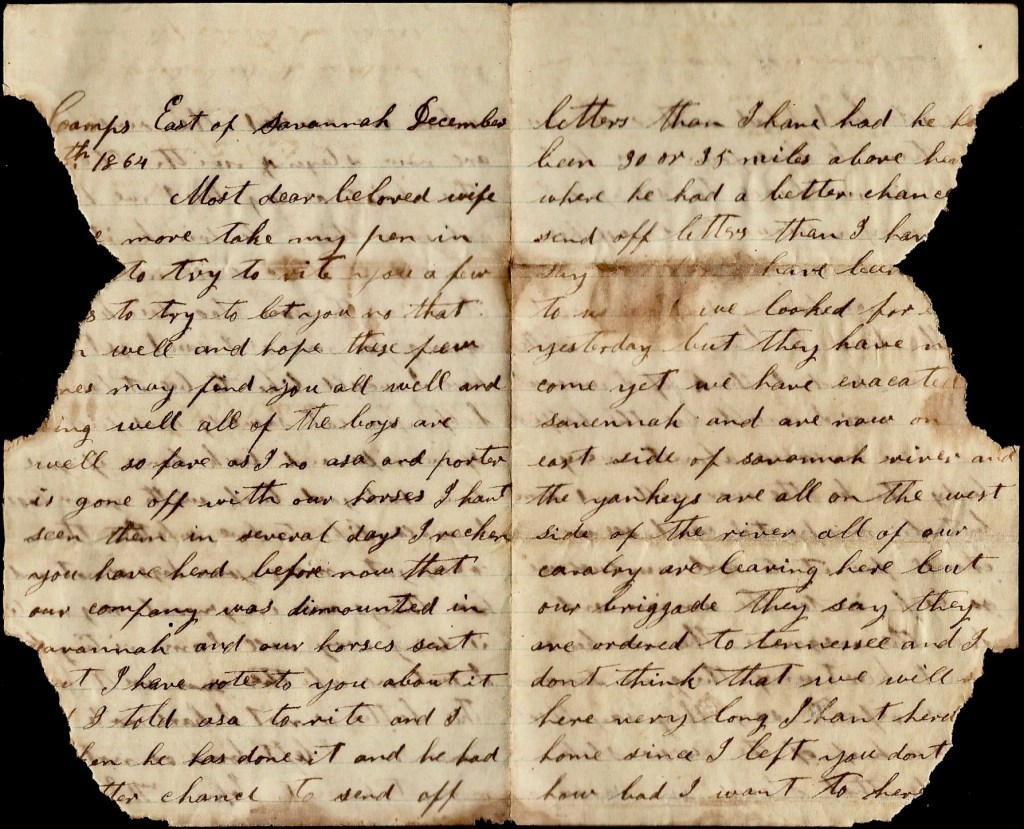 Camps East of Savannah December
th 1864
Most dear beloved wife
more take my pen in
to try to rite you a few
to try to let you no that
well and hope these few
nes may find you all well and
ing well all of the boys are
well so fare as I no asa and porter
is gone off with our horses I hant
seen them in several days I recken
you have herd before now that
our company was dismounted in
avannah and our horses sent
t I have rote to you about it
I told asa to rite and I
ken he has done it and he had
tter chance to send off
letters than I have had he ha
been 30 or 35 miles above her
where he had a better chance
send off letters than I hav
say have been
to us we looked for
yesterday but they have n
come yet we have evacated
savennah and are now on
east side of savannah river and
the yankeys are all on the west
side of the river all of our
cavalry are leaving here but
our briggade they say they
are ordered to tennessee and I
dont think that we will s
here very long I hant herd
home since I left you dont
how bad I want to here